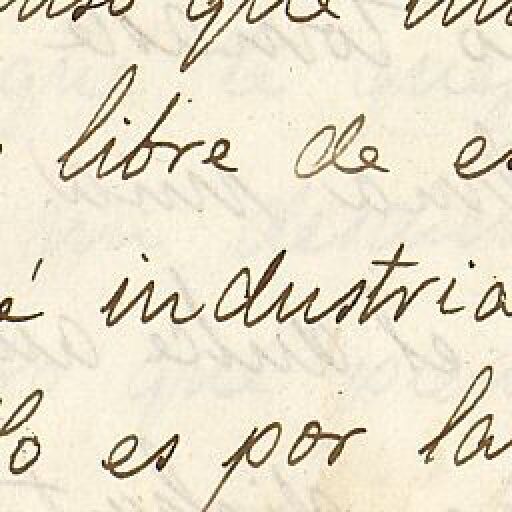 que
libre de es
é industria
lo es por la